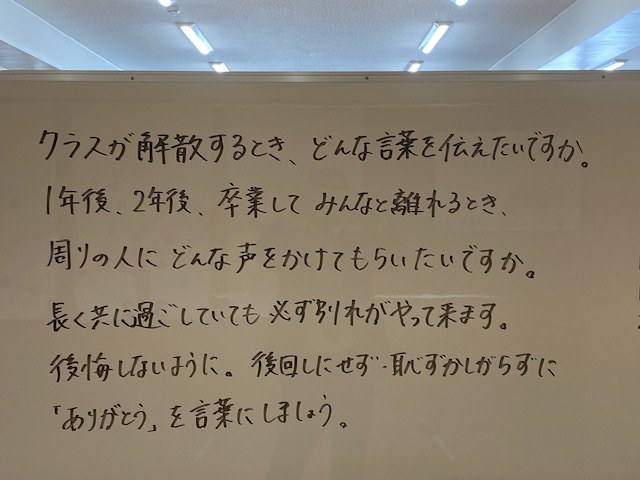 クラスが解散するとき、どんな言葉を伝えたいですか。
1年後、2年後、卒業して みんなと離れるとき、
周りの人に どんな声をかけてもらいたいですか。
長く共に過ごしていても 必ず別れがやって来ます。
後悔しないように。後回しにせず・恥ずかしがらずに
「ありがとう」を言葉にしましょう。